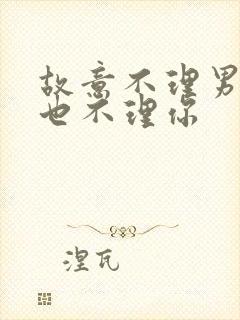 故意不理男
也不理你
涅瓦